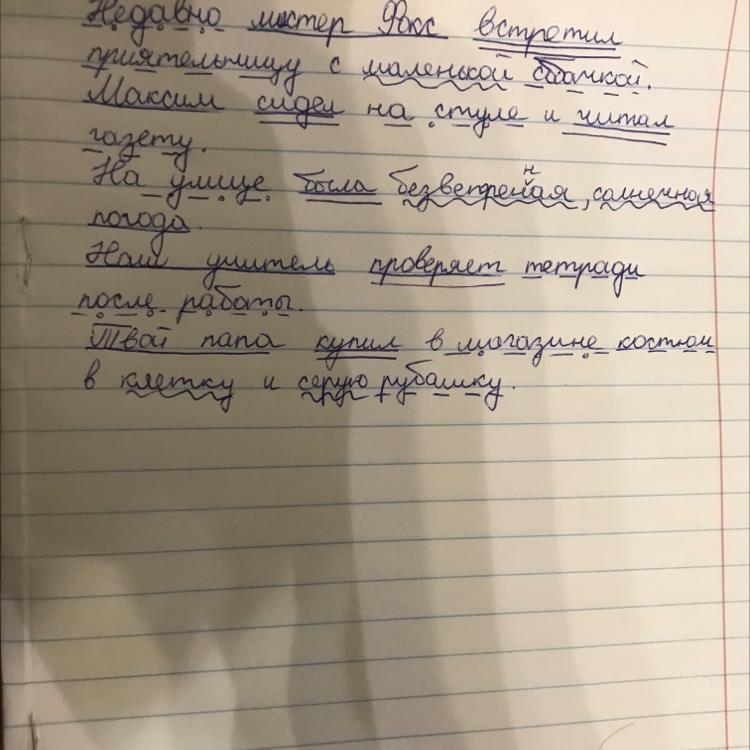 Недавно мистер Фокс встретил
приятельницу с маленькой собачкой.
Максим сидел на стуле и читал
газету.
На улице была безветренная, солнечная
погода.
Наш учитель проверяет тетради
после работы.
Твой папа купил в магазине костюм
в клетку и серую рубашку.